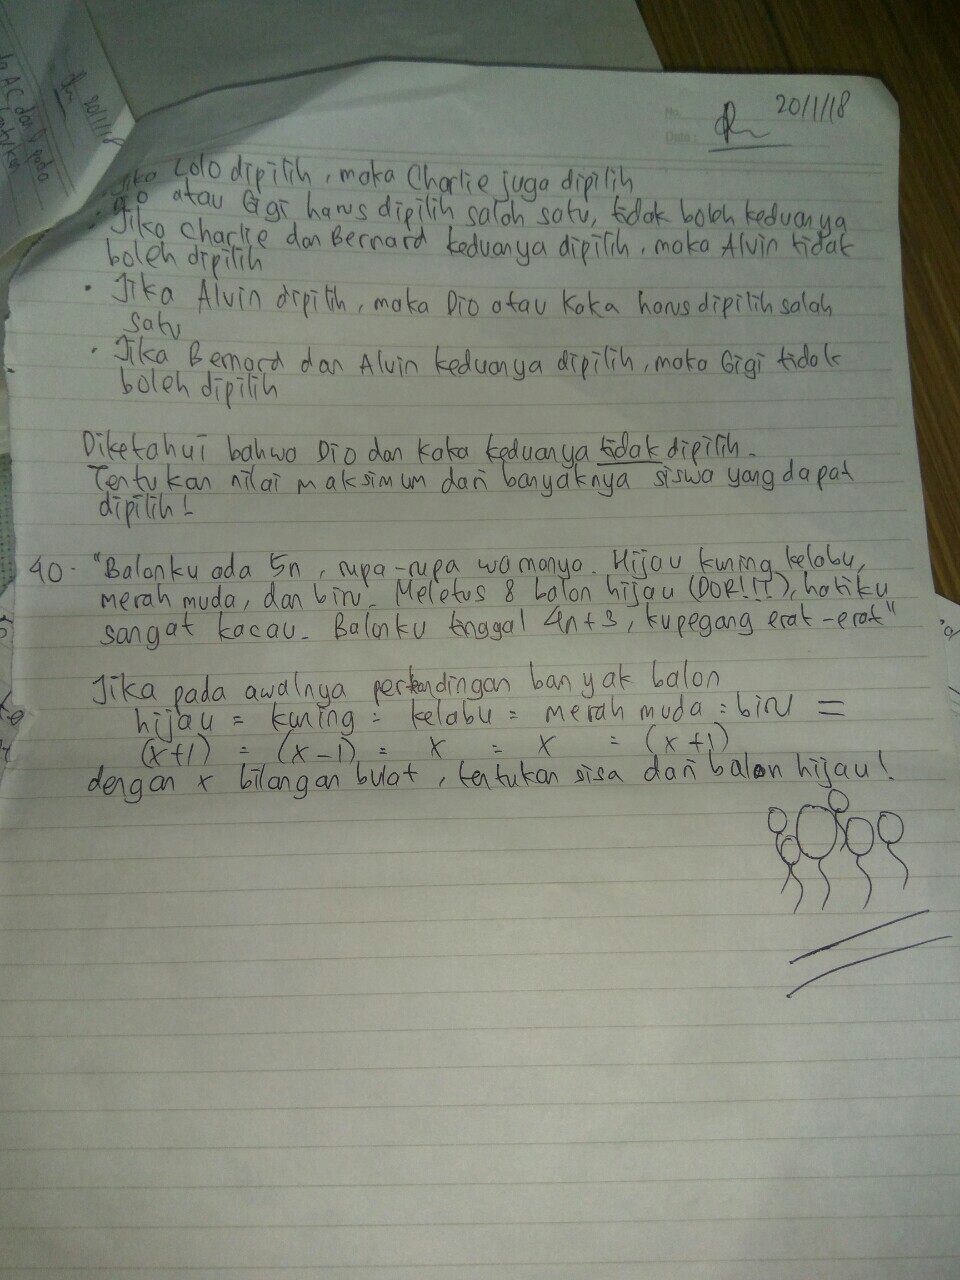 20/1/18
Jika Lolo dipilih, maka Charlie juga dipilih
atau Gigi harus dipilih salah satu, tidak boleh keduanya
Jika Charlie dan Bernard keduanya dipilih, maka Alvin tidak
boleh dipilih
• Jika Alvin dipilih, maka Dio atau Kaka harus dipilih salah
satu
• Jika Bernard dan Alvin keduanya dipilih, maka Gigi tidak
boleh dipilih
Diketahui bahwa Dio dan Kaka keduanya tidak dipilih.
Tentukan nilai maksimum dari banyaknya siswa yang dapat
dipilih!
40. "Balonku ada 5n, rupa-rupa warnanya. Hijau kuning kelabu,
merah muda, dan biru. Meletus 8 balon hijau (DOR!!!), hatiku
sangat kacau. Balonku tinggal 4n+3, kupegang erat-erat"
Jika pada awalnya perbandingan banyak balon
hijau : kuning : kelabu : merah muda : biru =
(x+1) : (x-1) : x : x : (x+1)
dengan x bilangan bulat, tentukan sisa dari balon hijau!
20/1/18